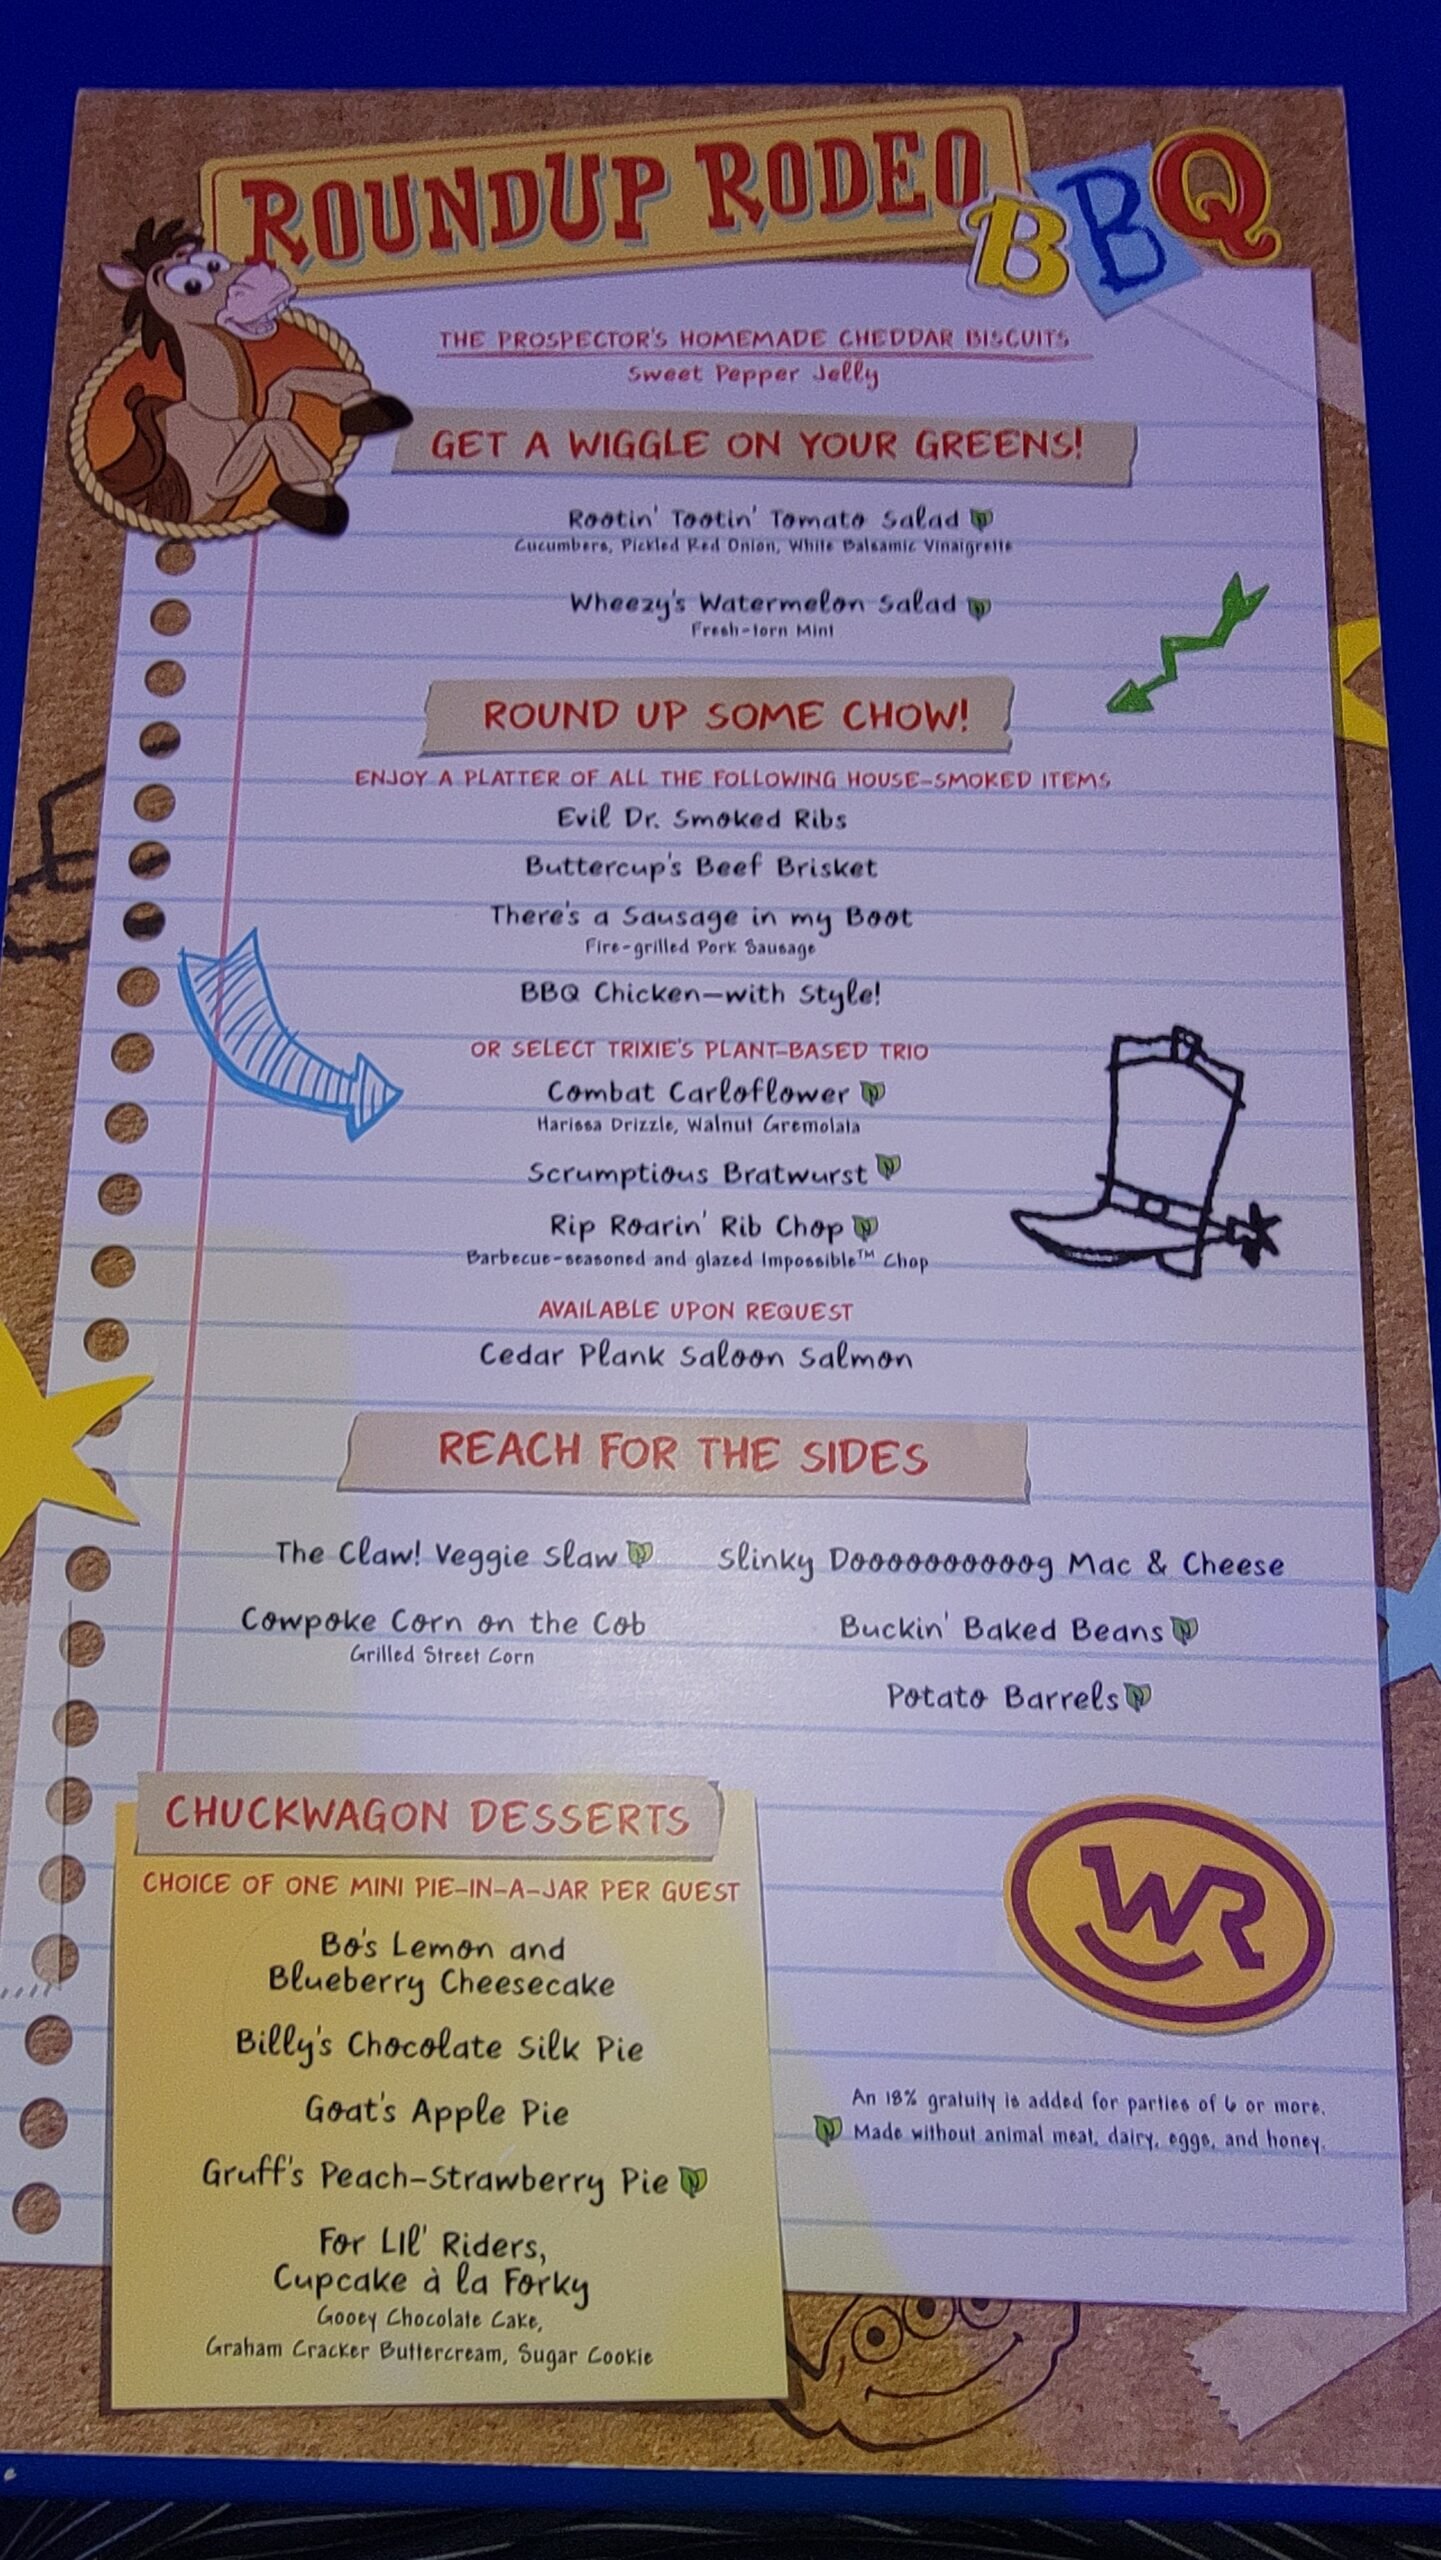 ROUNDUP RODEO
BBQ
THE PROSPECTOR'S HOMEMADE CHEDDAR BISCUITS
Sweet Pepper Jelly
GET A WIGGLE ON YOUR GREENS!
Rootin' Tootin' Tomato Salad
Cucumbers, Pickled Red Onion, White Balsamic Vinaigrette
Wheezy's Watermelon Salad
Fresh-torn Mint
ROUND UP SOME CHOW!
ENJOY A PLATTER OF ALL THE FOLLOWING HOUSE-SMOKED ITEMS
Evil Dr. Smoked Ribs
Buttercup's Beef Brisket
There's a Sausage in my Boot
Fire-grilled Pork Sausage
BBQ Chicken—with Style!
OR SELECT TRIXIE'S PLANT-BASED TRIO
Combat Carloflower
Harissa Drizzle, Walnut Gremolata
Scrumptious Bratwurst
Rip Roarin' Rib Chop
Barbecue-seasoned and glazed Impossible™ Chop
AVAILABLE UPON REQUEST
Cedar Plank Saloon Salmon
REACH FOR THE SIDES
The Claw! Veggie Slaw
Slinky Doooooooooog Mac & Cheese
Cowpoke Corn on the Cob
Grilled Street Corn
Buckin' Baked Beans
Potato Barrels
CHUCKWAGON DESSERTS
CHOICE OF ONE MINI PIE-IN-A-JAR PER GUEST
Bo's Lemon and
Blueberry Cheesecake
Billy's Chocolate Silk Pie
Goat's Apple Pie
Gruff's Peach-Strawberry Pie
For Lil' Riders,
Cupcake à la Forky
Gooey Chocolate Cake,
Graham Cracker Buttercream, Sugar Cookie
WR
An 18% gratuity is added for parties of 6 or more.
Made without animal meat, dairy, eggs, and honey.